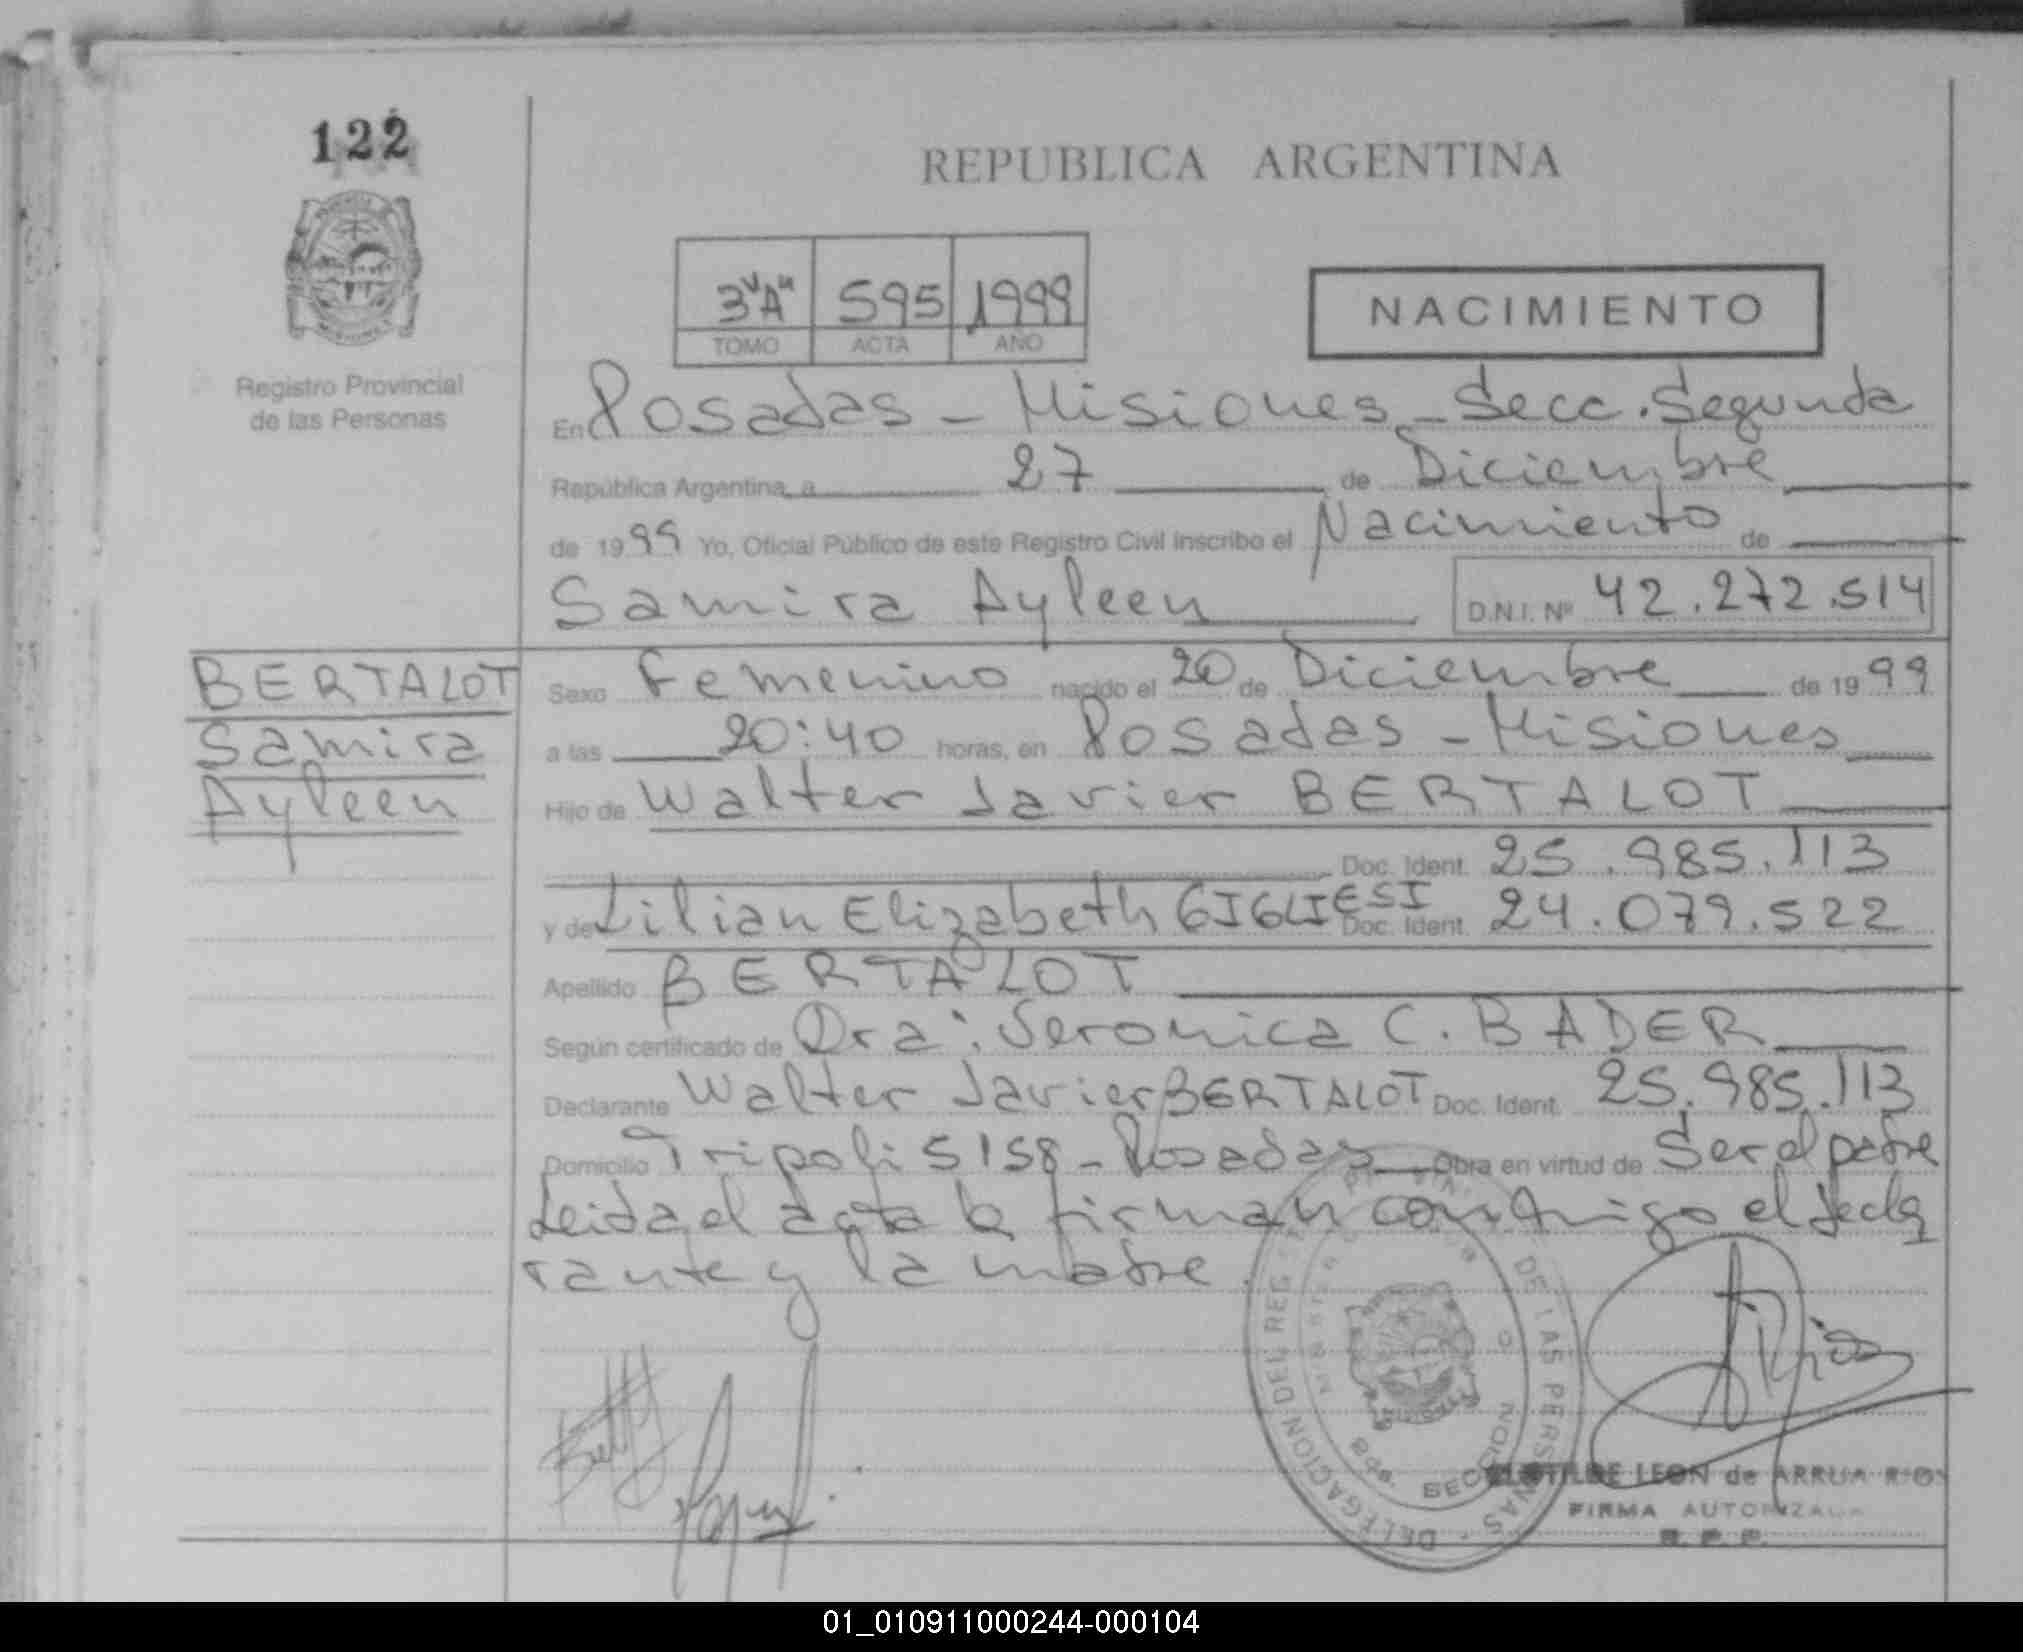 122
REPUBLICA ARGENTINA
3"A" 595 1999
TOMO ACTA AÑO
NACIMIENTO
Registro Provincial
de las Personas
En Posadas - Misiones - Secc. Segunda
República Argentina, a 27 de Diciembre
de 1999 Yo, Oficial Público de este Registro Civil inscribo el Nacimiento de
Samira Ayleen D.N.I. Nº 42.272.514
BERTALOT
Samira
Ayleen
Sexo Femenino nacido el 20 de Diciembre de 1999
a las 20:40 horas, en Posadas - Misiones
Hijo de Walter Javier BERTALOT
Doc. Ident. 25.985.113
y de Lilian Elizabeth GIGLIESI Doc. Ident. 24.079.522
Apellido BERTALOT
Según certificado de Dra: Veronica C. BADER
Declarante Walter Javier BERTALOT Doc. Ident. 25.985.113
Domicilio Tripoli 5158 - Posadas Obra en virtud de Ser el padre
Leida el acta la firman conmigo el decla
rante y la madre.
DELEGACION DEL REG DE LAS PERSONAS
SECCION
CLOTILDE LEON de ARRUA RIOS
FIRMA AUTORIZADA
R. P. P.
01_010911000244-000104